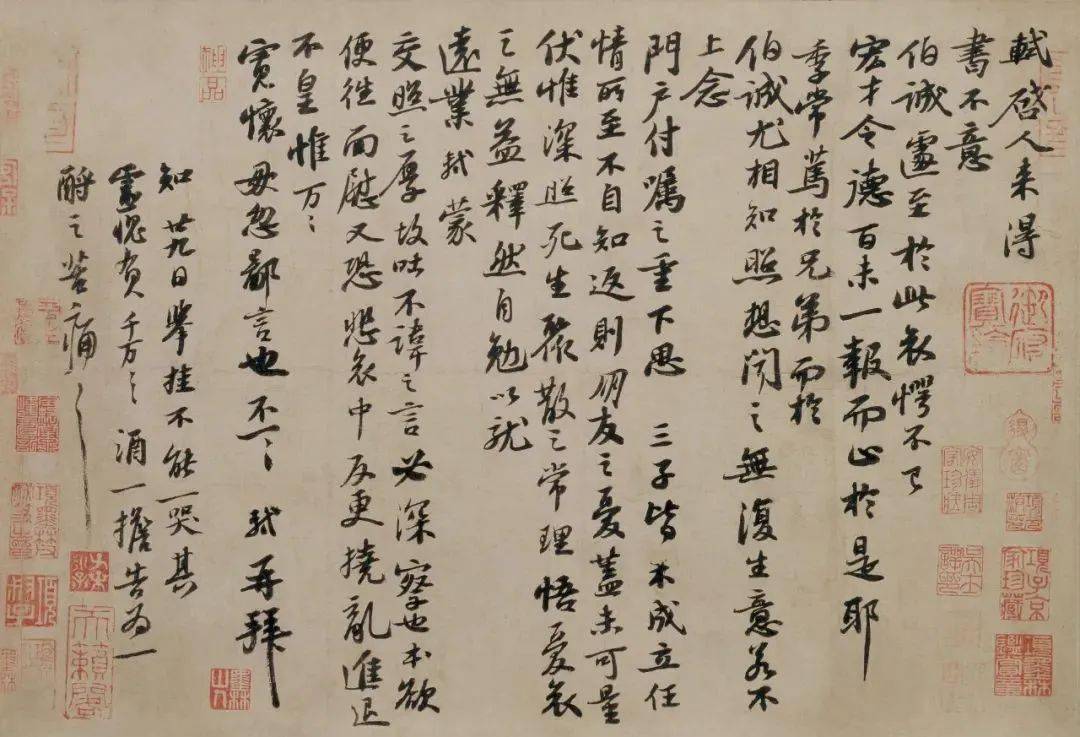 軾啓人来得
書不意
伯誠遽至於此哀愕不已
宏才令德百未一報而止於是耶
季常篤於兄弟而於
伯誠尤相知照想聞之無復生意若不
上念
門户付囑之重下思　三子皆未成立任
情所至不自知返則朋友之憂蓋未可量
伏惟深照死生聚散之常理悟憂哀
之無益釋然自勉以就
遠業軾蒙
交照之厚故吐不諱之言必深察也本欲
便往面慰又恐悲哀中反更撓亂進退
不皇惟万〻
寛懷毋忽鄙言也不一〻　軾再拜
知廿九日舉挂不能一哭其
靈愧負千万〻　酒一擔告為一
酹之苦痛〻
御府寶繪
安儀周家珍藏
項子京家珍藏
天籟閣